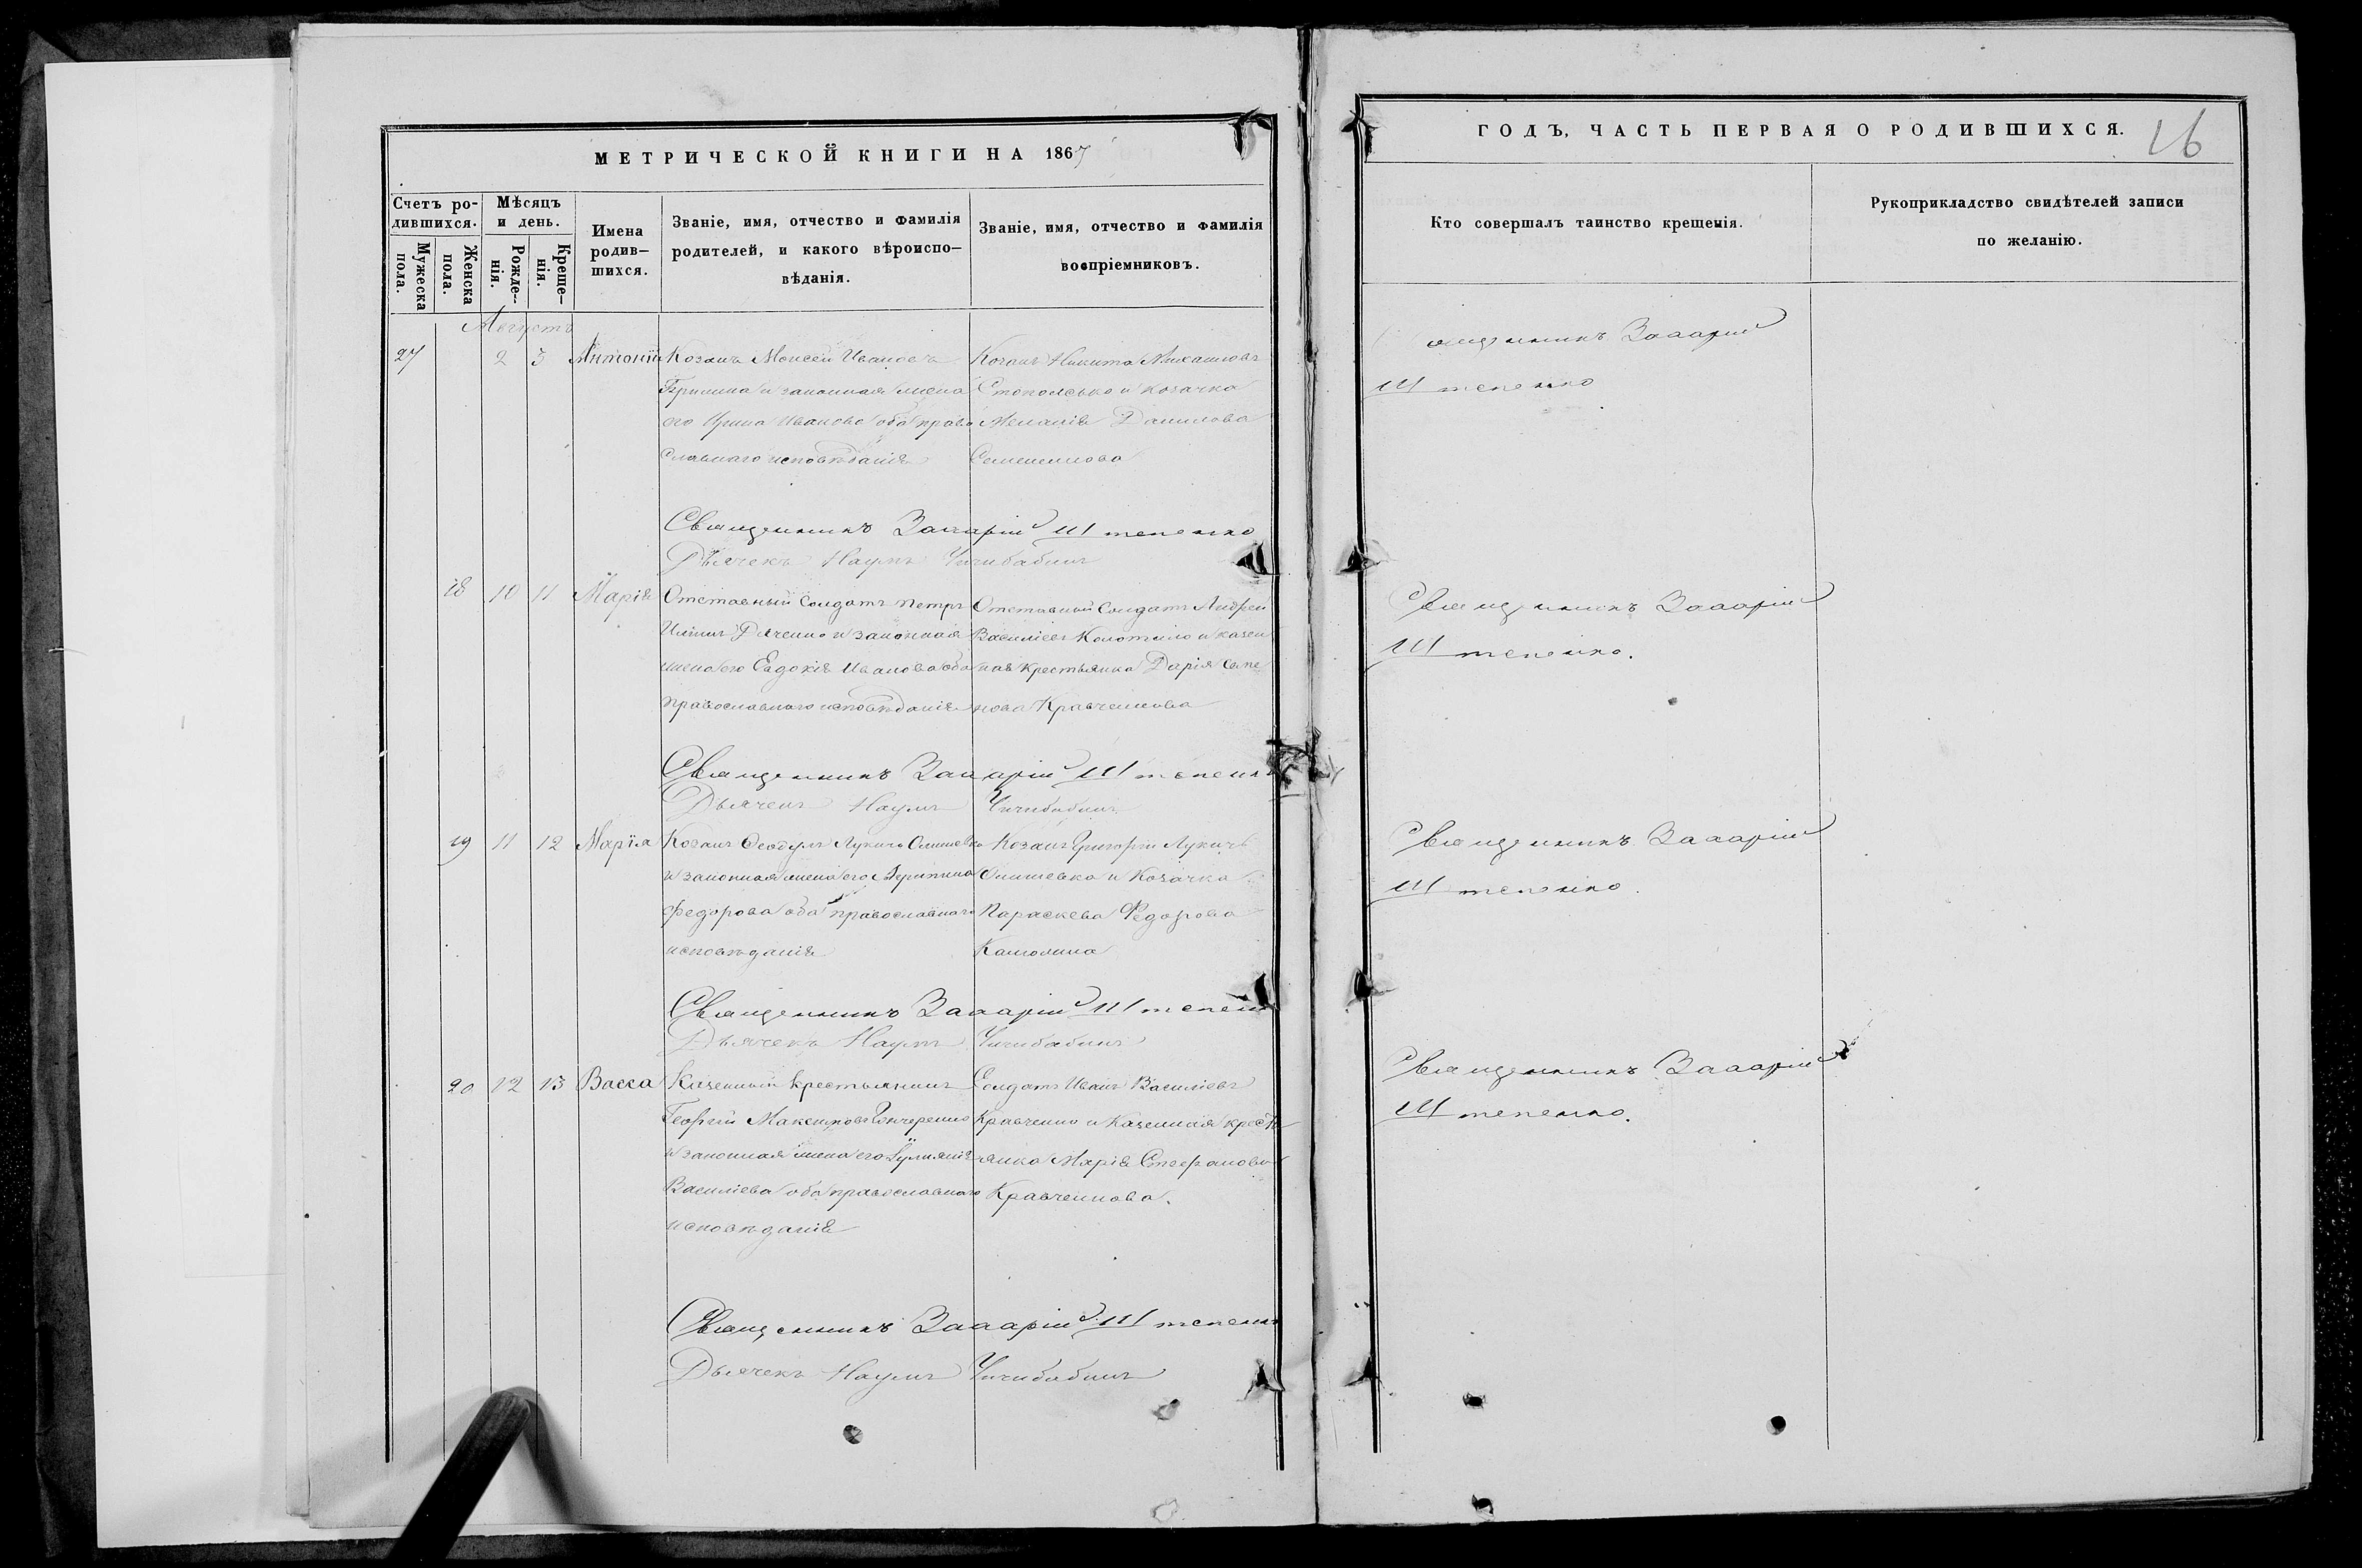 МЕТРИЧЕСКОЙ КНИГИ НА 1867
Счетъ ро-
дившихся.
Мужеска
пола.
Женска
пола.
Мѣсяцъ
и день.
Рожде-
нія.
Креще-
нія.
Имена
родив-
шихся.
Званіе, имя, отчество и фамилія
родителей, и какого вѣроиспо-
вѣданія.
Званіе, имя, отчество и фамилія
воспріемниковъ.
Августъ
27 2 3 Антоній
Козакъ Моисей Ивановъ
и законная жена
его Ирина Иванова оба право
славнаго исповѣданія
Козакъ Никита Михаиловъ
и козачка
Меланія Данилова
Семененкова
Священникъ Захарій Штепенко
Дьячекъ Наумъ Чичибабинъ
18 10 11 Марія
Отставный Солдатъ Петръ
Дяченко и законная
жена его Евдокія Иванова оба
православнаго исповѣданія
Отставный Солдатъ Андрей
Василіевъ Колотило и казен
ная крестьянка Дарія Семе
нова Кравченкова
Священникъ Захарій Штепенко
Дьячекъ Наумъ Чичибабинъ
19 11 12 Марія
Козакъ Ѳеодулъ Лукичъ Олишевко
и законная жена его
Федорова оба православнаго
исповѣданія
Козакъ Григорій Лукичъ
Олишевко и Козачка
Параскева Федорова
Священникъ Захарій Штепенко
Дьячекъ Наумъ Чичибабинъ
20 12 13 Васса
Казенный крестьянинъ
Георгій Максимовъ Гончаренко
и законная жена его Іуліанія
Василіева оба православнаго
исповѣданія
Солдатъ Иванъ Василіевъ
Кравченко и Казенная кресть
янка Марія Стефанова
Кравченкова.
Священникъ Захарій Штепенко
Дьячекъ Наумъ Чичибабинъ
ГОДЪ, ЧАСТЬ ПЕРВАЯ О РОДИВШИХСЯ.
16
Кто совершалъ таинство крещенія.
Рукоприкладство свидѣтелей записи
по желанію.
Священникъ Захарій
Штепенко
Священникъ Захарій
Штепенко.
Священникъ Захарій
Штепенко.
Священникъ Захарій
Штепенко.